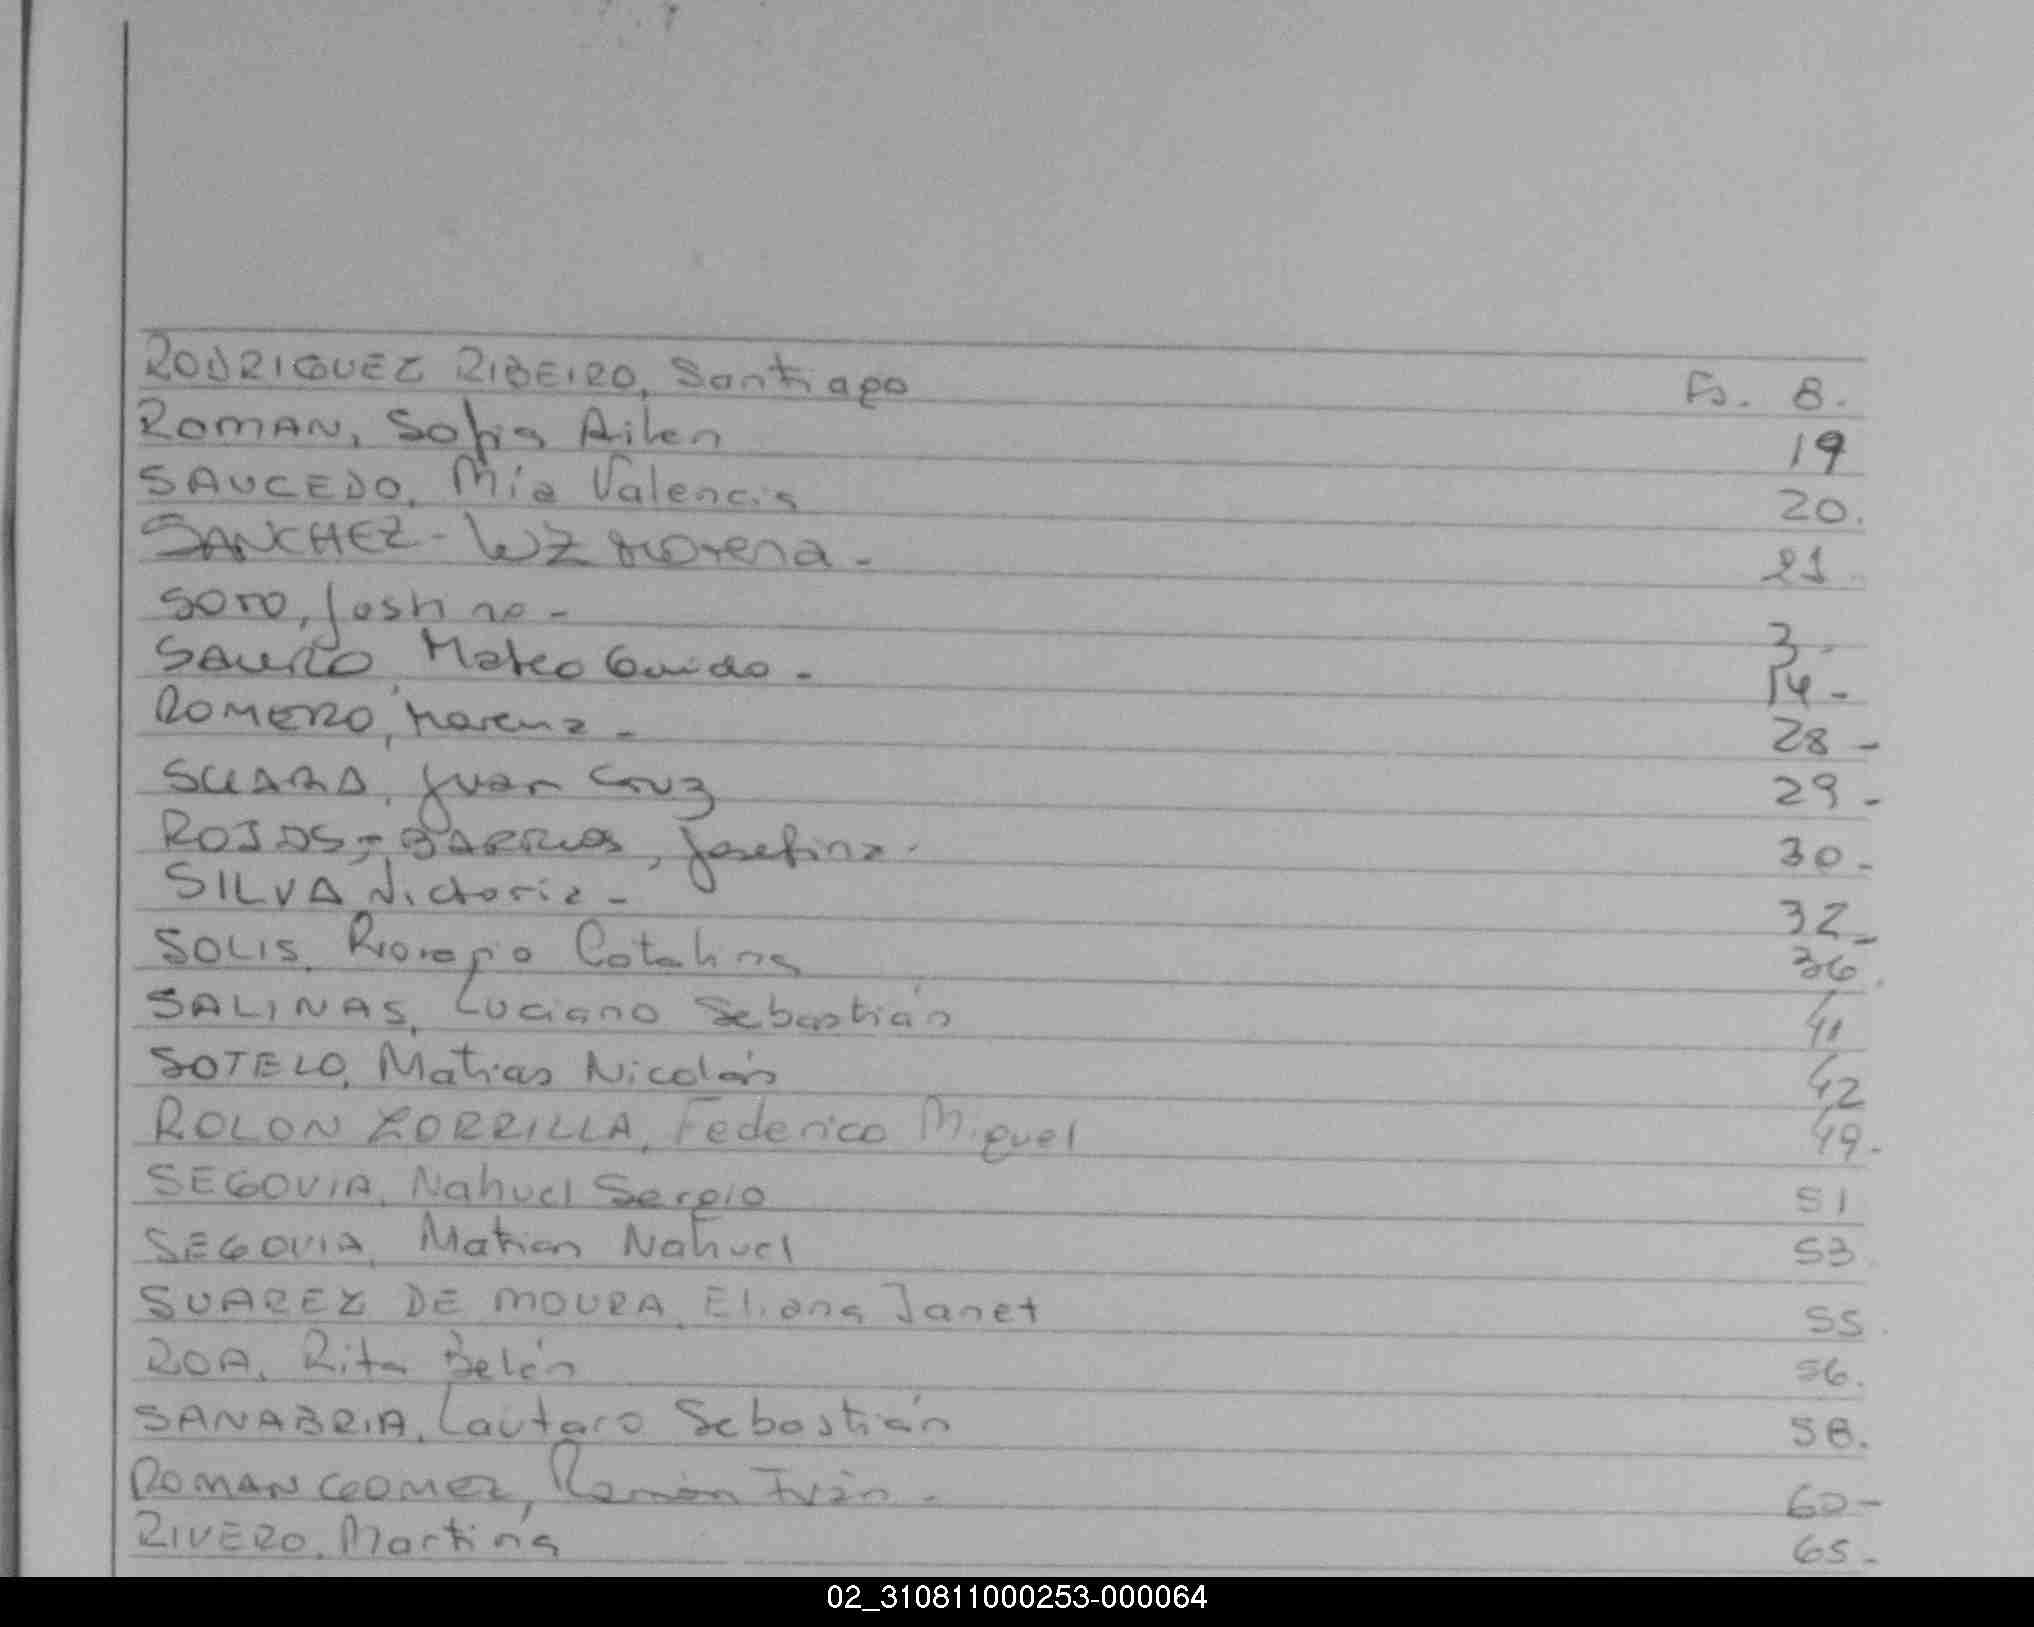 RODRIGUEZ RIBEIRO, Santiago Fs. 8.
ROMAN, Sofia Ailen 19
SAUCEDO, Mía Valencia 20.
SANCHEZ - LUZ Morena - 21.
SOTO, Justina - 3.
Mateo Guido - 14 -
ROMERO, Morena - 28 -
Juan Cruz 29 -
ROJAS, - BARRIOS, Josefina - 30 -
SILVA Victoria - 32 -
SOLIS, Catalina 36.
SALINAS, Luciano Sebastián 41
SOTELO, Matias Nicolás 42
ROLON ZORRILLA, Federico Miguel 49.
SEGOVIA, Nahuel Sergio 51
SEGOVIA, Matias Nahuel 53.
SUAREZ DE MOURA, Eliana Janet 55.
ROA, Rita Belén 56.
SANABRIA, Lautaro Sebastián 58.
ROMAN GOMEZ, Ramón Iván - 60 -
RIVERO, Martina 65 -
02_310811000253-000064